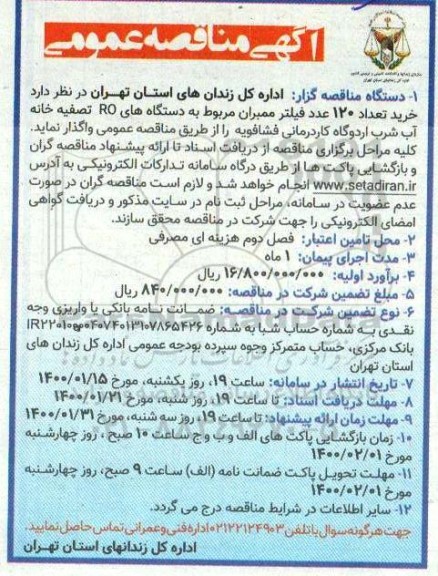 آگهی مناقصه عمومی
۱- دستگاه مناقصه گزار: اداره کل زندان های استان تهران در نظر دارد
خرید تعداد ۱۲۰ عدد فیلتر ممبران مربوط به دستگاه های RO تصفیه خانه
آب شرب اردوگاه کاردرمانی فشافویه را از طریق مناقصه عمومی واگذار نماید.
کلیه مراحل برگزاری مناقصه از دریافت اسناد تا ارائه پیشنهاد مناقصه گران
و بازگشایی پاکت ها از طریق درگاه سامانه تدارکات الکترونیکی به آدرس
www.setadiran.ir انجام خواهد شد و لازم است مناقصه گران در صورت
عدم عضویت در سامانه، مراحل ثبت نام در سایت مذکور و دریافت گواهی
امضای الکترونیکی را جهت شرکت در مناقصه محقق سازند.
۲- محل تامین اعتبار: فصل دوم هزینه ای مصرفی
۳- مدت اجرای پیمان: ۱ ماه
۴- برآورد اولیه: ۱۶/۸۰۰/۰۰۰/۰۰۰ ریال
۵- مبلغ تضمین شرکت در مناقصه: ۸۴۰/۰۰۰/۰۰۰ ریال
۶- نوع تضمین شرکت در مناقصه: ضمانت نامه بانکی یا واریزی وجه
نقدی به شماره حساب شبا به شماره
بانک مرکزی، حساب متمرکز وجوه سپرده بودجه عمومی اداره کل زندان های
استان تهران
۷- تاریخ انتشار در سامانه: ساعت ۱۹، روز یکشنبه، مورخ ۱۴۰۰/۰۱/۱۵
۸- مهلت دریافت اسناد: تا ساعت ۱۹، روز شنبه، مورخ ۱۴۰۰/۰۱/۲۱
۹- مهلت زمان ارائه پیشنهاد: تا ساعت ۱۹، روز سه شنبه، مورخ ۱۴۰۰/۰۱/۳۱
۱۰- زمان بازگشایی پاکت های الف و ب و ج ساعت ۱۰ صبح ، روز چهارشنبه
مورخ ۱۴۰۰/۰۲/۰۱
۱۱- مهلت تحویل پاکت ضمانت نامه (الف) ساعت ۹ صبح، روز چهارشنبه
مورخ ۱۴۰۰/۰۲/۰۱
۱۲- سایر اطلاعات در شرایط مناقصه درج می گردد.
جهت هرگونه سوال با تلفن ۰۲۱۲۲۱۲۴۹۰۳ اداره فنی و عمرانی تماس حاصل نمایید.
اداره کل زندانهای استان تهران